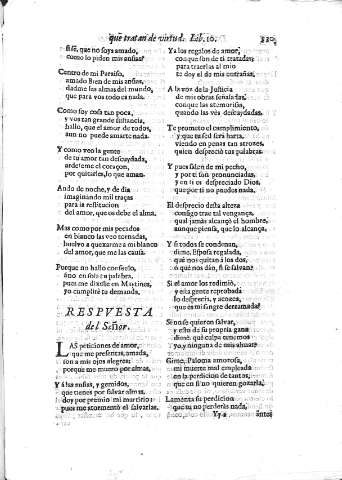 que tratan de virtud. Lib. 10.
330
si sé, que no soys amado,
como lo piden mis ansias?
Centro de mi Paraiso,
amado Bien de mis ansias,
dadme las almas del mundo,
que para vos todo es nada.
Como soy cosa tan poca,
y vos tan grande sustancia,
hallo, que el amor de todos,
aun no puede amarte nada.
Y como veo la gente
de tu amor tan descuydada,
ardeseme el coraçon,
por quitarles, lo que aman.
Ando de noche, y de dia
imaginando mil traças
para la restitucion
del amor, que os debe el alma.
Mas como por mis pecados
en blanco las veo tornadas,
buelvo a quexarme a mi blanco
del amor, que me las causa.
Porque no hallo consuelo,
sino en sola tu palabra,
pues me dixiste en Martines,
yo cumpliré tu demanda.
RESPVESTA
del Señor.
LAS peticiones de amor,
que me presentas, amada,
son a mis ojos alegres;
porque me muero por almas.
Y á las ansias, y gemidos,
que tienes por salvar almas,
doy por premio mi martirio;
pues me atormentó el salvarlas.
Ya los regalos de amor,
con que son de ti tratadas;
para traerlas al mio
te doy el de mis entrañas.
A la voz de la Justicia
de mis obras señaladas,
con que las atemorizas,
quando las vés descuydadas.
Te prometo el cumplimiento,
y que tu sed será harta,
viendo en penas tan atroces,
quien despreció tus palabras.
Y pues salen de mi pecho,
y por ti son pronunciadas,
y en ti es despreciado Dios,
que por ti no puedes nada.
El desprecio desta altera
consigo trae tal vengança,
qual jamás alcançó el hombre,
aunque piensa, que lo alcança.
Y si todos se condenan,
dime, Esposa regalada,
qué nos quitan á los dos,
ò qué nos dán, si se salvan?
Si el amor los redimiò,
y esta gente reprobada
lo desprecia, y acocea,
que es mi sangre derramada?
Si no se quieren salvar,
y esto de su propia gana
dime, què culpa tenemos
yo, y ninguna de mis almas?
Gime, Paloma amorosa,
mi muerte mal empleada
en la perdicion de tantos,
que en si no quieren gozarla.
Lamenta su perdicion
que tu no perderás nada,
Yy 2
antes